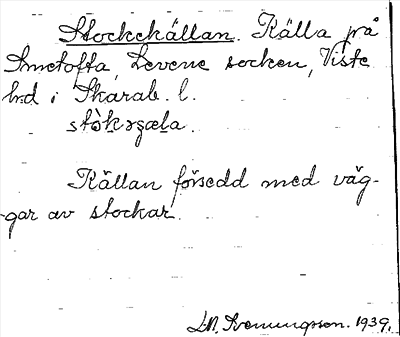 Stockekällan. Källa på
Smetofta, Levene socken, Viste
hd i Skarab. l.
stòkɘʂæla.
Källan försedd med väg-
gar av stockar.
1939.